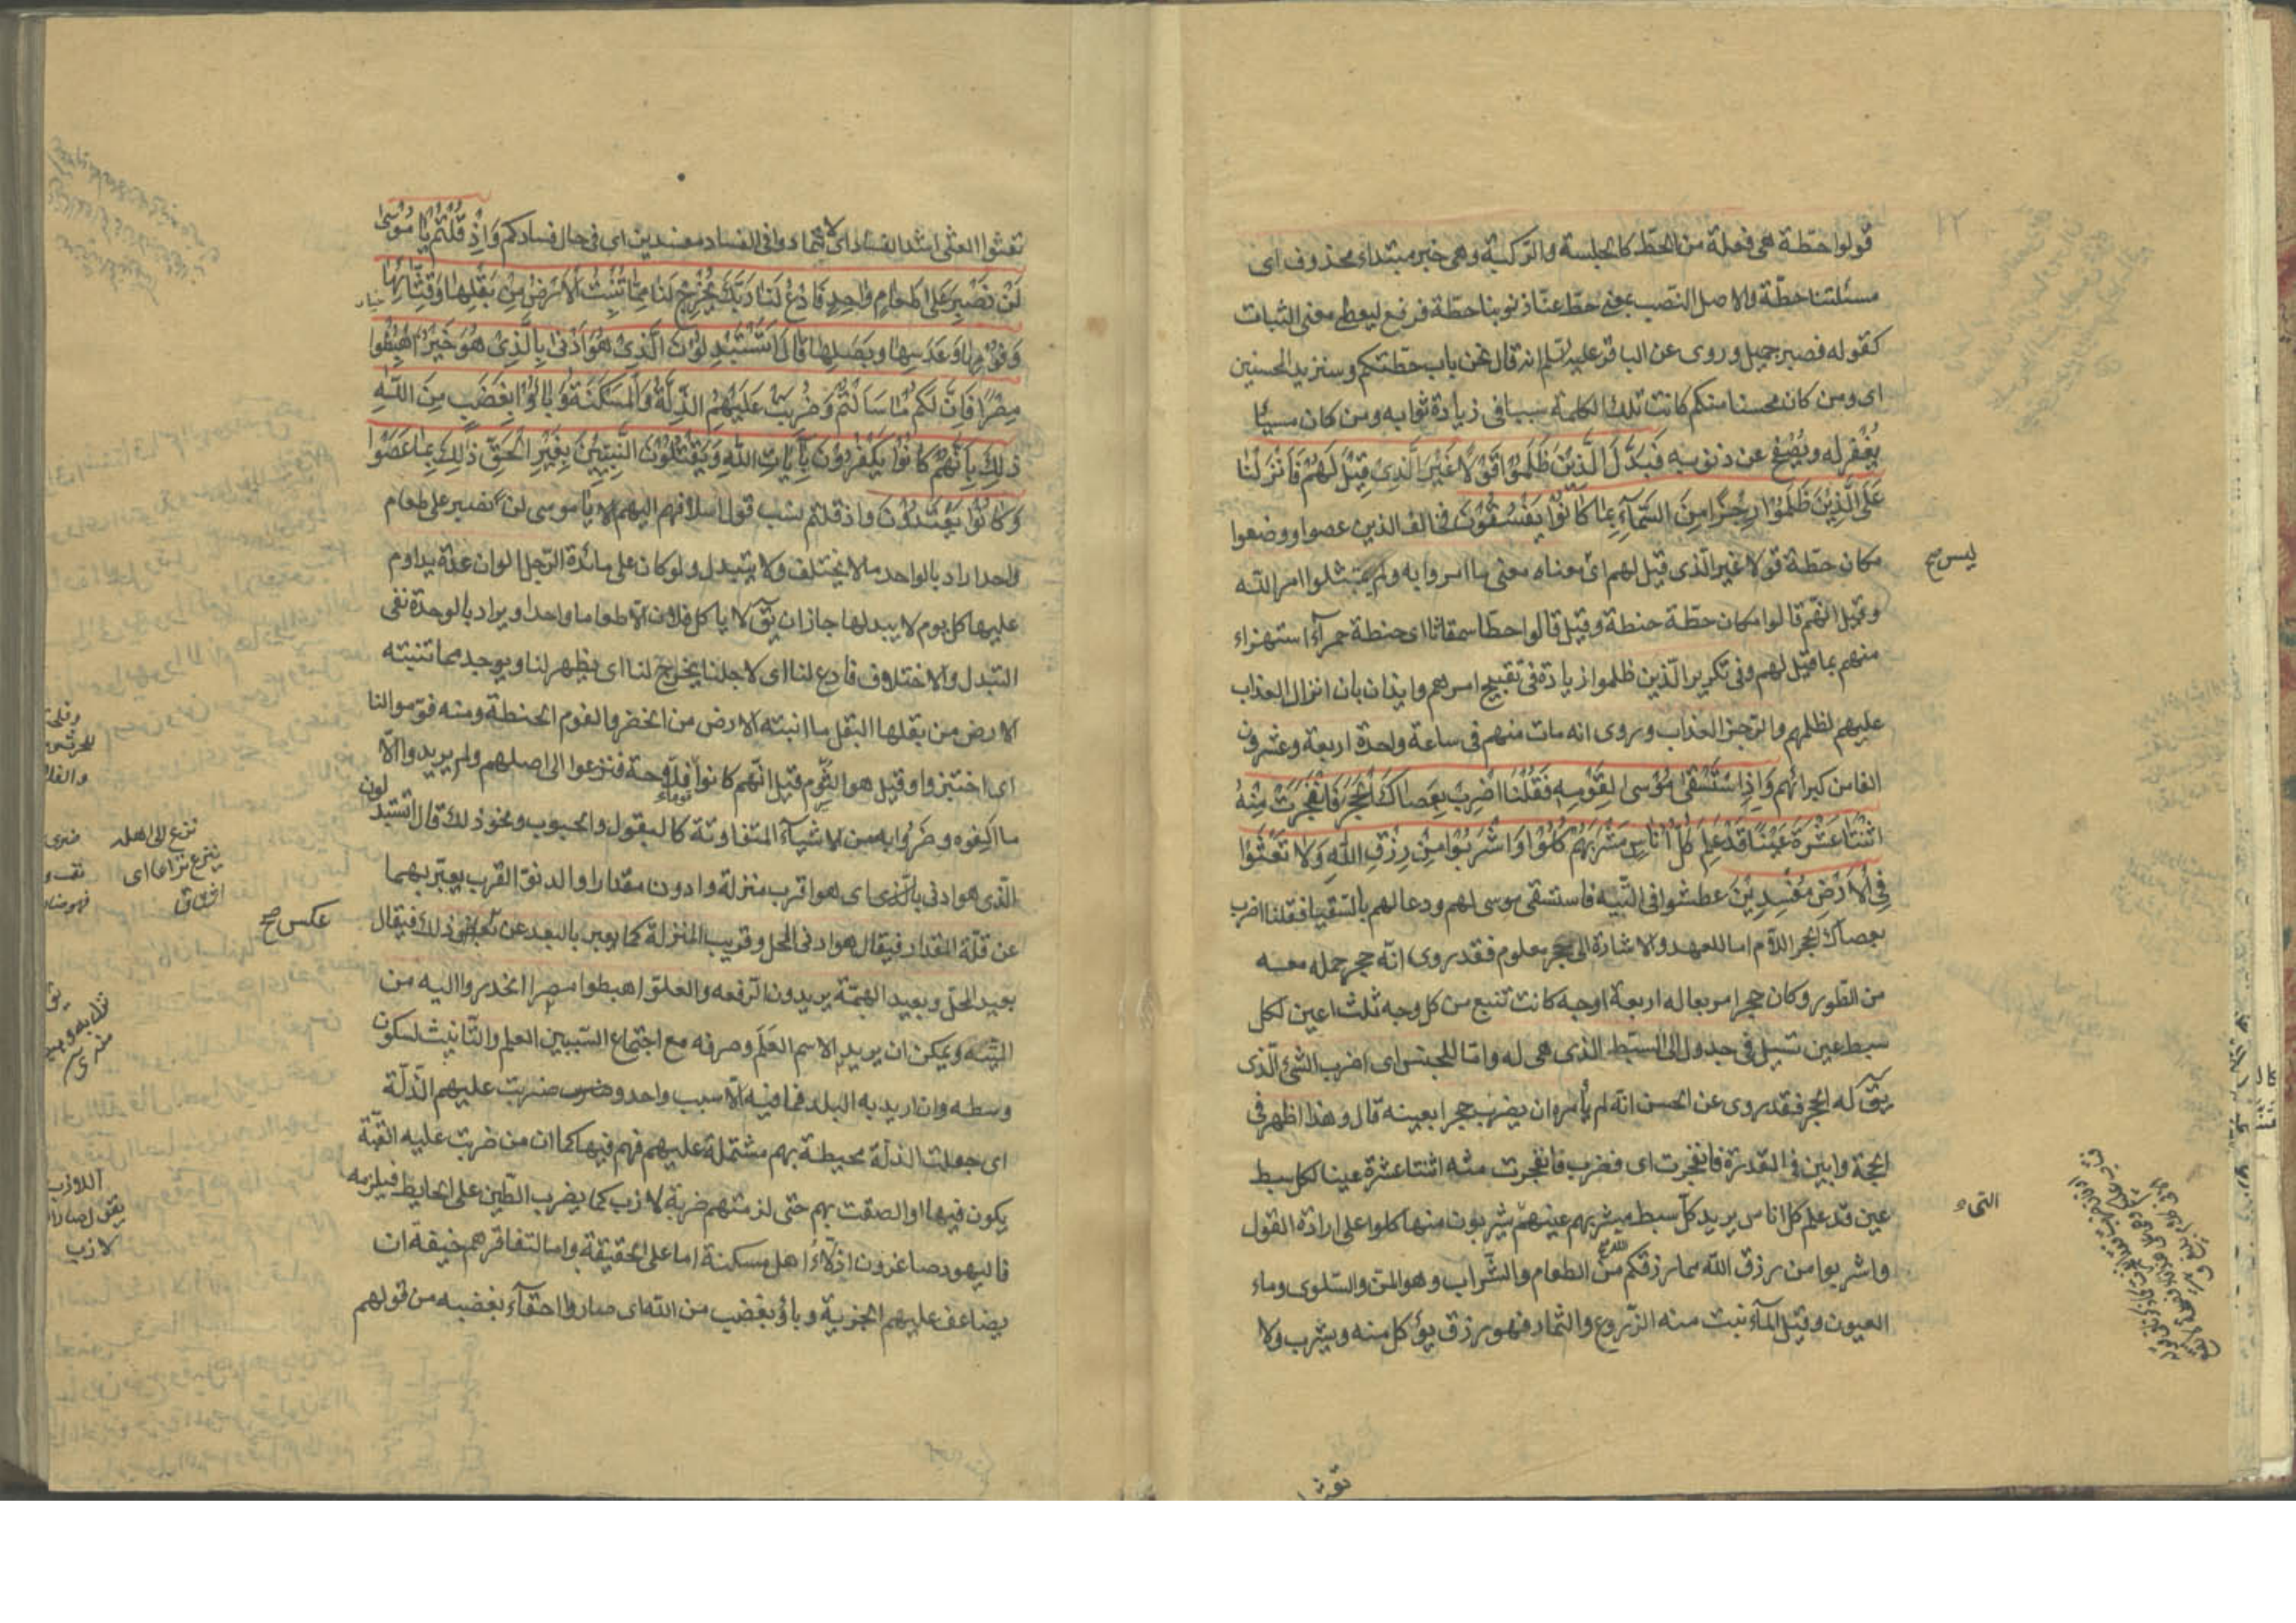 قولوا حطة هى فعلة من الحطّ كالجلسة والركبة وهى خبر مبتداء محذوف اى
مسئلتنا حطّة والاصل النّصب بمعنى حطّ عنّا ذنوبنا حطّة فرفع ليعطى معنى الثبات
كقوله فصبر جميل وروى عن الباقر عليه السّلم انه قال نحن باب حطّتكم وسنزيد المحسنين
اى ومن كان محسنا منكم كانت تلك الكلمة سببا فى زيادة ثوابه ومن كان مسيئا
يغفر له ويصفح عن ذنوبه فَبَدَّلَ الَّذِينَ ظَلَمُوا قَوْلًا غَيْرَ الَّذِى قِيلَ لَهُمْ فَأَنْزَلْنَا
عَلَى الَّذِينَ ظَلَمُوا رِجْزًا مِنَ السَّمَآءِ بِمَا كَانُوا يَفْسُقُونَ فخالف الذين عصوا ووضعوا
مكان حطّة قولا غير الّذى قيل لهم اى معناه معنى ما امروا به ولم يمتثلوا امر الله
ليس صح
وقيل انّهم قالوا مكان حطّة حنطة وقيل قالوا حطّا سمقاثا اى حنطة حمرآء استهزاء
منهم بما قيل لهم وفى تكرير الّذين ظلموا زيادة فى تقبيح امرهم وايذان بان انزال العذاب
عليهم لظلمهم والرّجز العذاب وروى انه مات منهم فى ساعة واحدة اربعة وعشرون
الفا من كبرائهم وَإِذِ اسْتَسْقَى مُوسَى لِقَوْمِهِ فَقُلْنَا اضْرِبْ بِعَصَاكَ الْحَجَرَ فَانْفَجَرَتْ مِنْهُ
اثْنَتَا عَشْرَةَ عَيْنًا قَدْ عَلِمَ كُلُّ أُنَاسٍ مَشْرَبَهُمْ كُلُوا وَاشْرَبُوا مِنْ رِزْقِ اللَّهِ وَلَا تَعْثَوْا
فِى الْأَرْضِ مُفْسِدِينَ عطشوا فى التّيه فاستسقى موسى لهم ودعا لهم بالسّقيا فقلنا اضرب
بعصاك الحجر اللام اما للعهد والاشارة الى حجر معلوم فقد روى انّه حجر حمله معه
من الطّور وكان حجرا مربعا له اربعة اوجه كانت تنبع من كل وجه ثلث اعين لكل
سبط عين تسيل فى جدول الى السّبط الذى هى له وامّا للجنس اى اضرب الشئ الّذى
يقٓ له الحجر فقد روى عن الحسن انّه لم يأمره ان يضرب حجرا بعينه قال وهذا اظهر فى
الحجة وابين فى القدرة فانفجرت اى فضرب فانفجرت منه اثنتا عشرة عينا لكل سبط
عين قد علم كل اناس يريد كل سبط مشربهم عينهم يشربون منها كلوا على ارادة القول
واشربوا من رزق الله مما رزقكم الله من الطعام والشّراب وهو المنّ والسّلوى وماء
العيون وقيل المآء نبت منه الزّروع والثمار فهو رزق يؤكل منه ويشرب ولا
تعثوا
تعثوا العثى اشد الفساد اى لا تتمادوا فى الفساد مفسدين اى فى حال فسادكم وَإِذْ قُلْتُمْ يَا مُوسَى
لَنْ نَصْبِرَ عَلَى طَعَامٍ وَاحِدٍ فَادْعُ لَنَا رَبَّكَ يُخْرِجْ لَنَا مِمَّا تُنْبِتُ الْأَرْضُ مِنْ بَقْلِهَا وَقِثَّائِهَا
وَفُومِهَا وَعَدَسِهَا وَبَصَلِهَا قَالَ أَتَسْتَبْدِلُونَ الَّذِى هُوَ أَدْنَى بِالَّذِى هُوَ خَيْرٌ اهْبِطُوا
مِصْرًا فَإِنَّ لَكُمْ مَا سَأَلْتُمْ وَضُرِبَتْ عَلَيْهِمُ الذِّلَّةُ وَالْمَسْكَنَةُ وَبَاؤُا بِغَضَبٍ مِنَ اللَّهِ
ذَلِكَ بِأَنَّهُمْ كَانُوا يَكْفُرُونَ بِآيَاتِ اللَّهِ وَيَقْتُلُونَ النَّبِيِّينَ بِغَيْرِ الْحَقِّ ذَلِكَ بِمَا عَصَوْا
وَكَانُوا يَعْتَدُونَ واذ قلتم نسب قول اسلافهم اليهم يا موسى لن نصبر على طعام
واحد اراد بالواحد ما لا يختلف ولا يتبدل ولو كان على مائدة الرّجل الوان عدة يداوم
عليها كل يوم لا يبدلها جاز ان يقٓ لا ياكل فلان الّا طعاما واحدا ويراد بالوحدة نفى
التبدل والاختلاف فادع لنا اى لاجلنا يخرج لنا اى يظهر لنا ويوجد مما تنبته
الارض من بقلها البقل ما انبته الارض من الخضر والفوم الحنطة ومنه فوّموا لنا
اى اختبزوا وقيل هو الثّوم قيل انّهم كانوا فلّاحة فنزعوا الى اصلهم ولم يريدوا الّا
ما الفوه وضروا به من الاشيآء المتفاوتة كالبقول والحبوب ونحو ذلك قال اتستبدلون
الّذى هو ادنى بالّذى اى هو اقرب منزلة وادون مقدارا والدنوّ القرب يعبّر بهما
عن قلّة المقدار فيقال هو ادنى المحل وقريب المنزلة كما يعبر بالبعد عن عكس ذلك فيقال
عكس صح
بعيد المحلّ وبعيد الهمّة يريدون الرفعة والعلوّ اهبطوا مصرا انحدروا اليه من
التّيه ويمكن ان يريد الاسم العَلَم وصرفه مع اجتماع السّببين العلم والتّانيث لسكون
وسطه وان اريد به البلد فما فيه الّا سبب واحد وضربت عليهم الذّلّة
اى جعلت الذلّة محيطة بهم مشتملة عليهم فهم فيها كما ان من ضربت عليه القبّة
يكون فيها او الصقت بهم حتى لزمتهم ضربة لازب كما يضرب الطّين على الحايط فيلزمه
فاليهود صاغرون اذلّاء اهل مسكنة اما على الحقيقة واما لتفاقرهم خيفة ان
يضاعف عليهم الجزية وباؤ بغضب من الله اى صاروا احقآء بغضبه من قولهم
نزع الى اهله
ينزع نزاعا اى
اشتاق